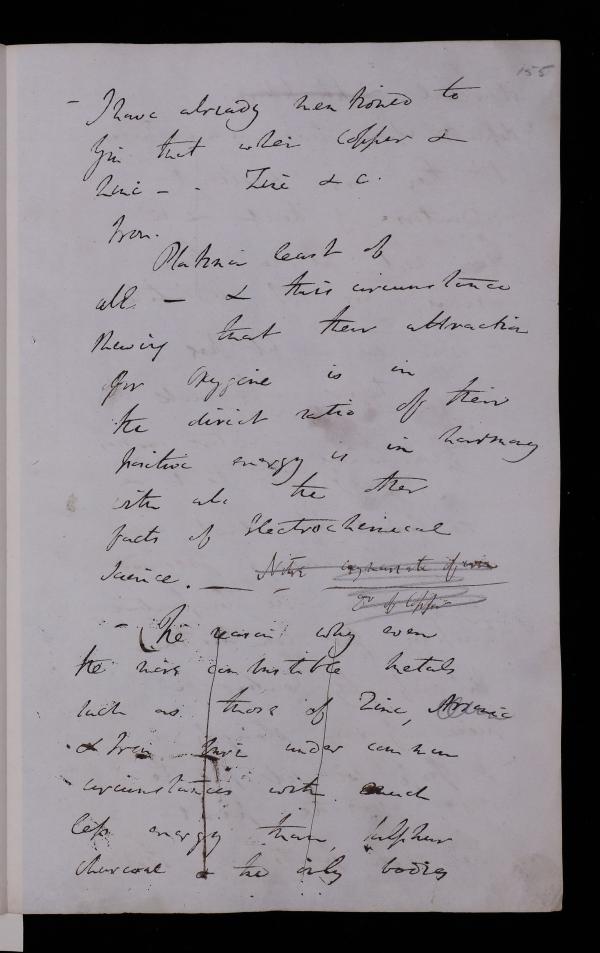 155
- I have already mentioned to
You that when Copper &
Zinc - - Zinc & c.
Iron.
Platina least of
all. — & this circumstance
shewing that their attraction
for Oxygene is in
the direct ratio of their
positive energy is in harmony
with all the other
facts of Electrochemical
Science. —
or of Copper
- (The reason why even
the more combustible metals
such as those of Zinc, Arsenic
& Iron burn under common
circumstances with much
less energy than sulphur
charcoal & the oily bodies